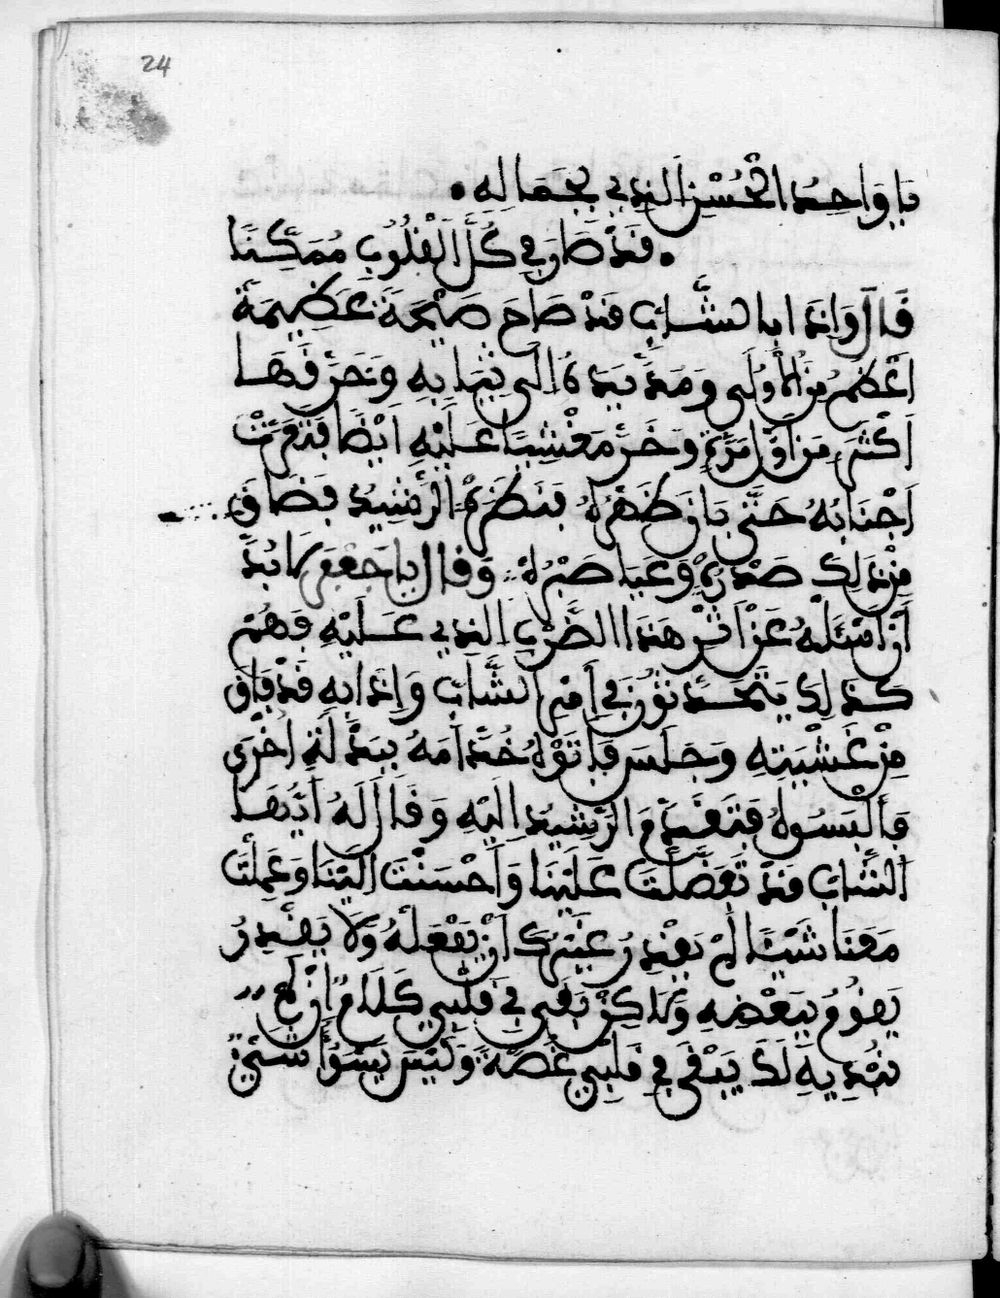 24
يا واحد الحُسْنِ الذي بجماله •
• قد صار في كُلّ القُلُوبِ مُمَكَّنَا
قال واذا بالشّاب قد صاح صَيْحَة عَظِيمَة
اعْظَمُ من الأولى ومَدّ يَدهُ الى ثيابه وخرقها
اكثر من اوّل مرّةٍ وخرّ مغشيا عليه ايضا فتعرت
اجْنَابُهُ حَتَّى بان ظَهْرُهُ فنظرهُ الرشيد فضاق
من ذلك صَدْرهُ وعيا صَبْرُهُ وقال يا جعفر لا بُدّ
أن اسْئَلهُ عن اثر هذا الضَّرب الذي عليه فهم
كذلك يتحدثون في أمر الشّاب واذا به قد فاق
مِنْ غَشْيَتِهِ وجلس فأتَوْهُ خُدّامهُ ببذلَةٍ اخرى
فألْبسُوهُ فتقدّم الرشيد اليه وقال له ايّها
الشاب قد تَفَضَّلْتَ علينا وأحْسنْتَ الينا وعملت
معنا شيئا لم يقدرُ غيرك أن يفعله ولا يقدرُ
يقومُ ببعضه ولاكن بقى في قلبي كلام ان لم
نبْدِيهِ لك يبقى في قلبي غُصّة وليس يسوأ شيئ